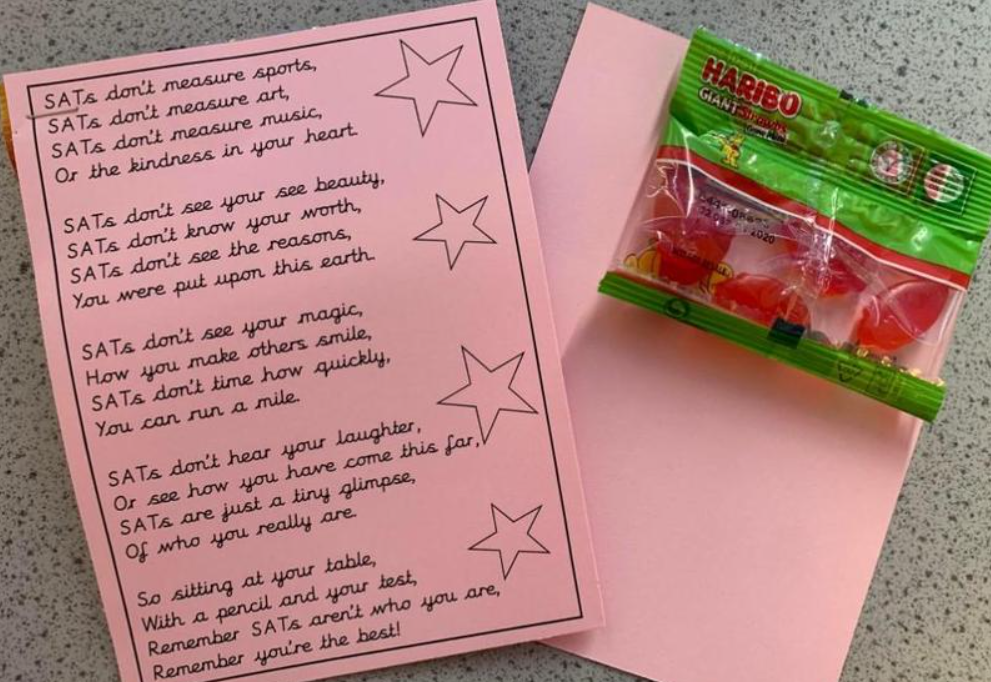 SATs don't measure sports,
SATs don't measure art,
SATs don't measure music,
Or the kindness in your heart.
SATs don't see your see beauty,
SATs don't know your worth,
SATs don't see the reasons,
You were put upon this earth.
SATs don't see your magic,
How you make others smile,
SATs don't time how quickly,
You can run a mile.
SATs don't hear your laughter,
Or see how you have come this far,
SATs are just a tiny glimpse,
Of who you really are.
So sitting at your table,
With a pencil and your test,
Remember SATs aren't who you are,
Remember you're the best!
HARIBO
GIANT
2020